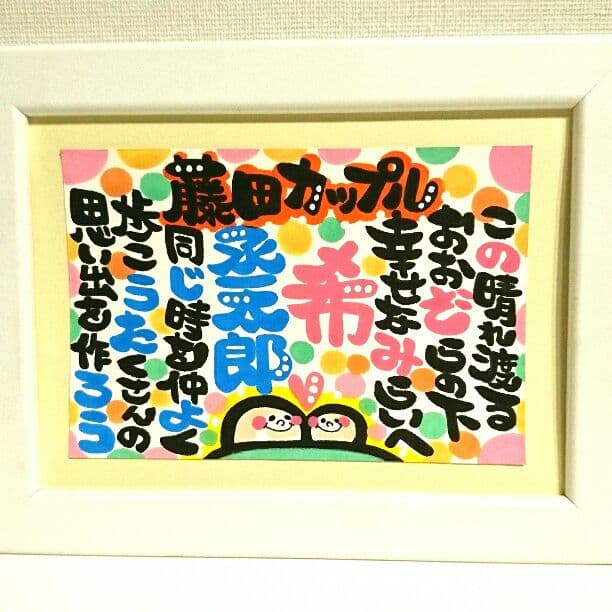 藤田カップル
この晴れ渡る
おおぞらの下
幸せなみらいへ
希
丞太郎
同じ時を仲よく
歩こうたくさんの
思い出を作ろう